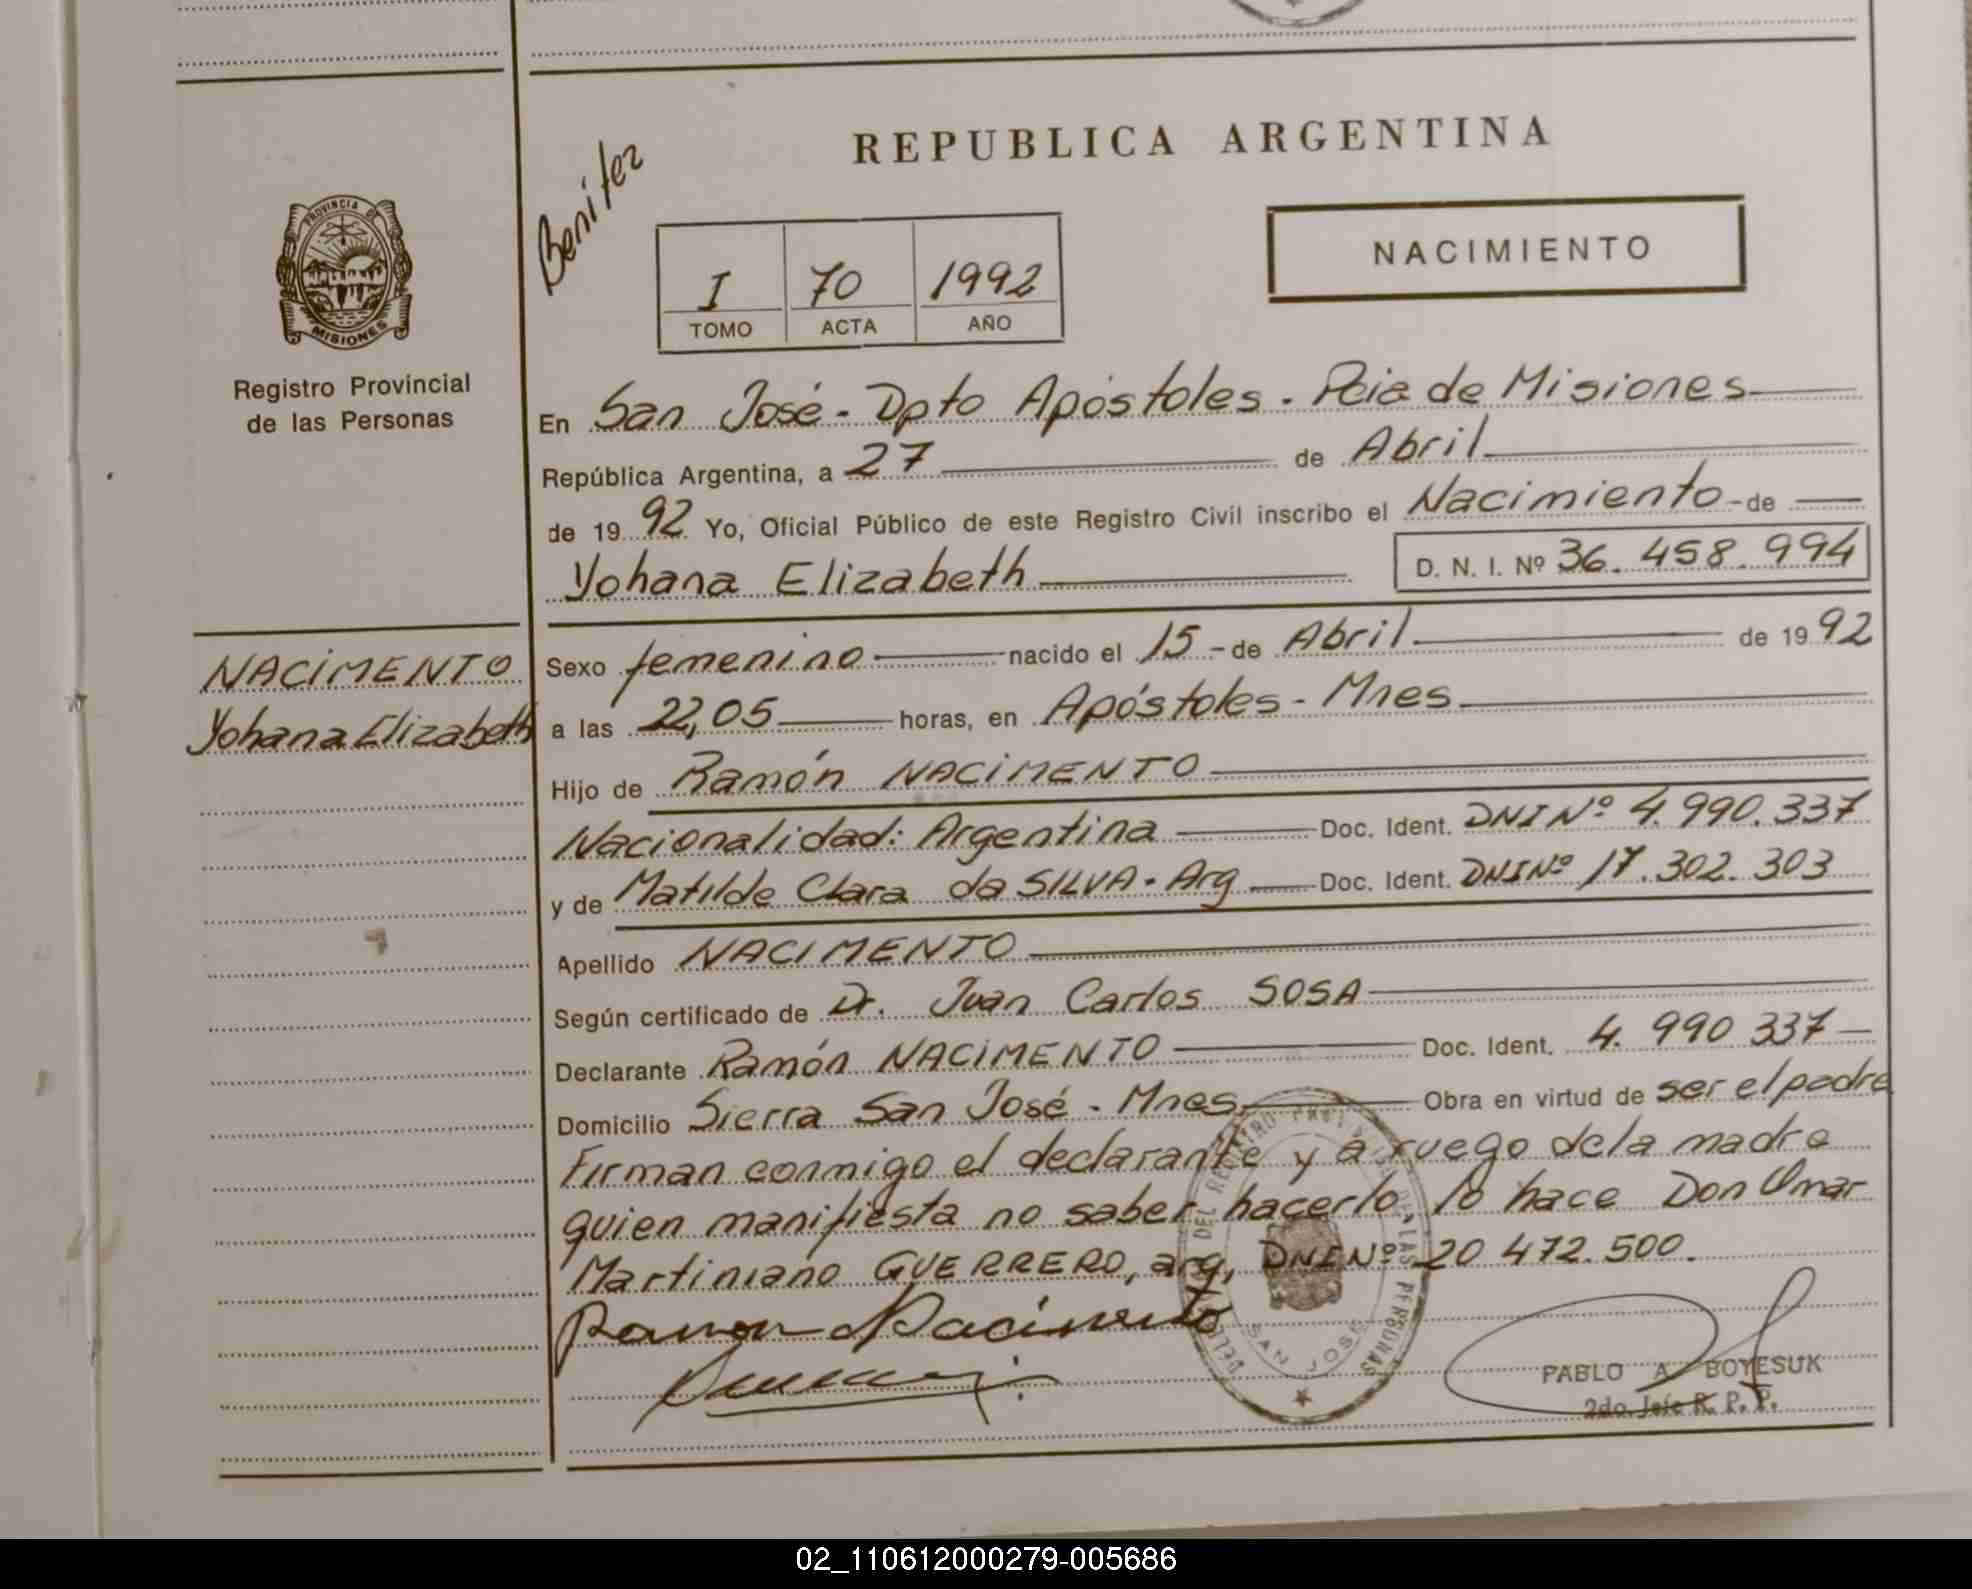 REPUBLICA ARGENTINA
Benitez
PROVINCIA DE
MISIONES
Registro Provincial
de las Personas
I 70 1992
TOMO ACTA AÑO
NACIMIENTO
En San José - Dpto Apóstoles - Pcia de Misiones
República Argentina, a 27 de Abril
de 1992 Yo, Oficial Público de este Registro Civil inscribo el Nacimiento - de
Yohana Elizabeth D. N. I. Nº 36.458.994
NACIMENTO
Yohana Elizabeth
Sexo femenino nacido el 15 - de Abril de 1992
a las 22,05 horas, en Apóstoles - Mnes
Hijo de Ramón NACIMENTO
Nacionalidad: Argentina Doc. Ident. DNI Nº 4.990.337
y de Matilde Clara da SILVA - Arg Doc. Ident. DNI Nº 17.302.303
Apellido NACIMENTO
Según certificado de Dr. Juan Carlos SOSA
Declarante Ramón NACIMENTO Doc. Ident. 4.990 337
Domicilio Sierra San José - Mnes. Obra en virtud de ser el padre
Firman conmigo el declarante y a ruego de la madre
quien manifiesta no saber hacerlo, lo hace Don Omar
Martiniano GUERRERO, arg, DNI Nº 20 472.500.
Ramon Nacimento
DEL REGISTRO PROVINCIAL DE LAS PERSONAS
SAN JOSE
PABLO A. BOYESUK
2do. Jefe R. P. P.
02_110612000279-005686